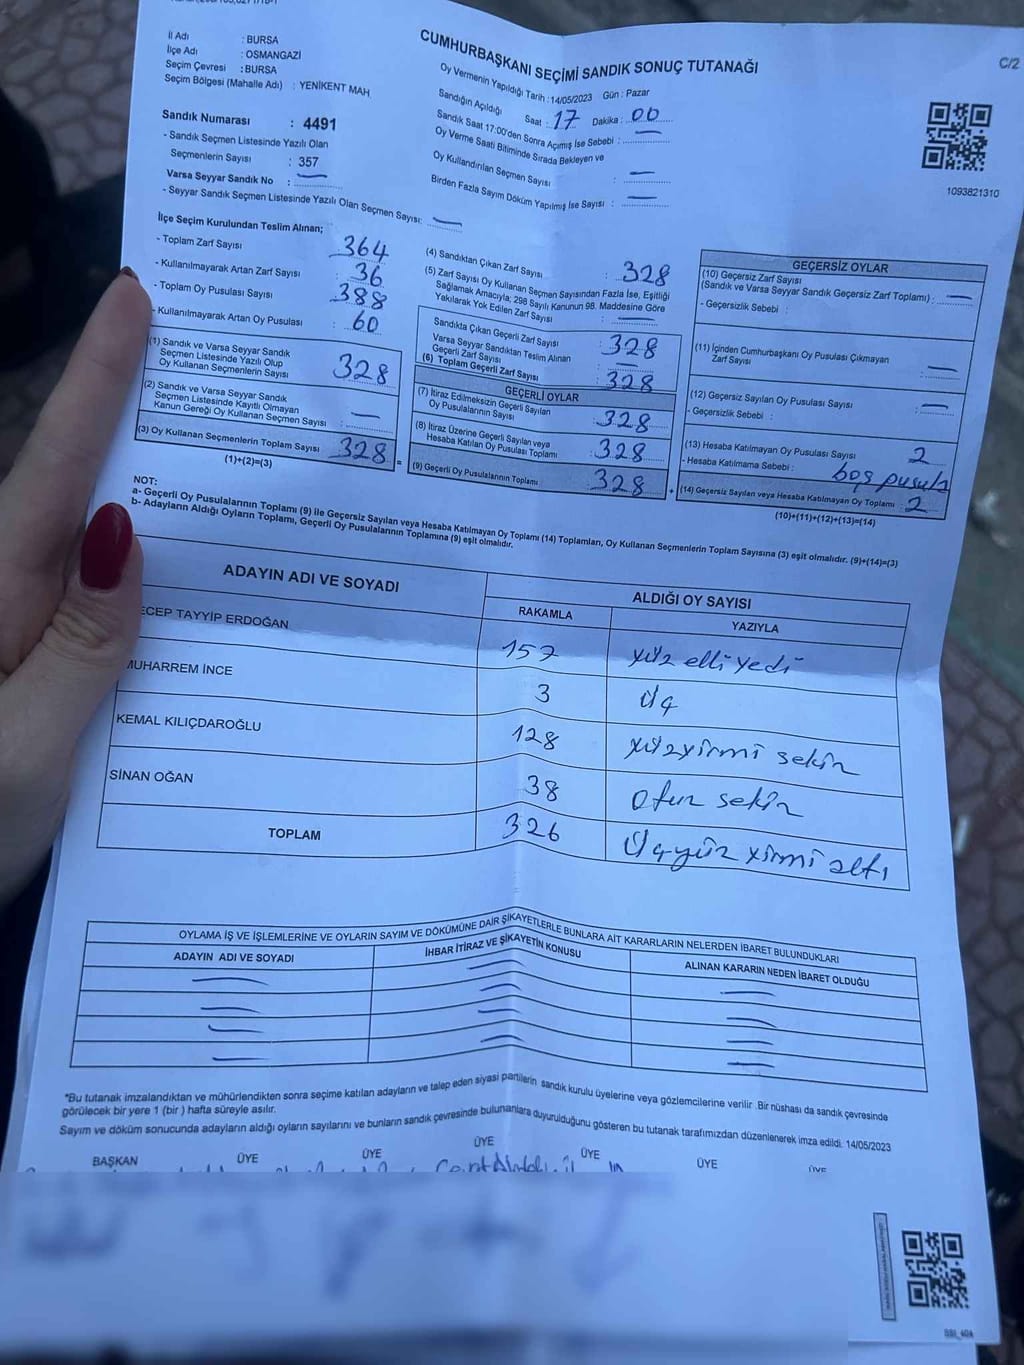 İl Adı : BURSA
İlçe Adı : OSMANGAZİ
Seçim Çevresi : BURSA
Seçim Bölgesi (Mahalle Adı) : YENİKENT MAH
Sandık Numarası : 4491
- Sandık Seçmen Listesinde Yazılı Olan
Seçmenlerin Sayısı : 357
Varsa Seyyar Sandık No : —
- Seyyar Sandık Seçmen Listesinde Yazılı Olan Seçmen Sayısı: —
CUMHURBAŞKANI SEÇİMİ SANDIK SONUÇ TUTANAĞI
C/2
Oy Vermenin Yapıldığı Tarih : 14/05/2023 Gün : Pazar
Sandığın Açıldığı Saat : 17 Dakika : 00
Sandık Saat 17:00'den Sonra Açımış İse Sebebi : —
Oy Verme Saati Bitiminde Sırada Bekleyen ve
Oy Kullandırılan Seçmen Sayısı : —
Birden Fazla Sayım Döküm Yapılmış İse Sayısı : —
1093821310
İlçe Seçim Kurulundan Teslim Alınan;
- Toplam Zarf Sayısı : 364
- Kullanılmayarak Artan Zarf Sayısı : 36
- Toplam Oy Pusulası Sayısı : 388
- Kullanılmayarak Artan Oy Pusulası : 60
(1) Sandık ve Varsa Seyyar Sandık
Seçmen Listesinde Yazılı Olup
Oy Kullanan Seçmenlerin Sayısı : 328
(2) Sandık ve Varsa Seyyar Sandık
Seçmen Listesinde Kayıtlı Olmayan
Kanun Gereği Oy Kullanan Seçmen Sayısı : —
(3) Oy Kullanan Seçmenlerin Toplam Sayısı : 328
(1)+(2)=(3)
=
(4) Sandıktan Çıkan Zarf Sayısı : 328
(5) Zarf Sayısı Oy Kullanan Seçmen Sayısından Fazla İse, Eşitliği
Sağlamak Amacıyla; 298 Sayılı Kanunun 98. Maddesine Göre
Yakılarak Yok Edilen Zarf Sayısı : —
Sandıkta Çıkan Geçerli Zarf Sayısı : 328
Varsa Seyyar Sandıktan Teslim Alınan
Geçerli Zarf Sayısı : —
(6) Toplam Geçerli Zarf Sayısı : 328
GEÇERLİ OYLAR
(7) İtiraz Edilmeksizin Geçerli Sayılan
Oy Pusulalarının Sayısı : 328
(8) İtiraz Üzerine Geçerli Sayılan veya
Hesaba Katılan Oy Pusulası Toplamı : 328
(9) Geçerli Oy Pusulalarının Toplamı : 328
+
GEÇERSİZ OYLAR
(10) Geçersiz Zarf Sayısı
(Sandık ve Varsa Seyyar Sandık Geçersiz Zarf Toplamı) : —
- Geçersizlik Sebebi :
(11) İçinden Cumhurbaşkanı Oy Pusulası Çıkmayan
Zarf Sayısı : —
(12) Geçersiz Sayılan Oy Pusulası Sayısı : —
- Geçersizlik Sebebi :
(13) Hesaba Katılmayan Oy Pusulası Sayısı : 2
- Hesaba Katılmama Sebebi : boş pusula
(14) Geçersiz Sayılan veya Hesaba Katılmayan Oy Toplamı : 2
(10)+(11)+(12)+(13)=(14)
NOT:
a- Geçerli Oy Pusulalarının Toplamı (9) ile Geçersiz Sayılan veya Hesaba Katılmayan Oy Toplamı (14) Toplamları, Oy Kullanan Seçmenlerin Toplam Sayısına (3) eşit olmalıdır. (9)+(14)=(3)
b- Adayların Aldığı Oyların Toplamı, Geçerli Oy Pusulalarının Toplamına (9) eşit olmalıdır.
ADAYIN ADI VE SOYADI
ALDIĞI OY SAYISI
RAKAMLA YAZIYLA
ECEP TAYYİP ERDOĞAN 157 yüz elli yedi
MUHARREM İNCE 3 üç
KEMAL KILIÇDAROĞLU 128 yüzyirmi sekiz
SİNAN OĞAN 38 otuz sekiz
TOPLAM 326 üçyüz yirmi altı
OYLAMA İŞ VE İŞLEMLERİNE VE OYLARIN SAYIM VE DÖKÜMÜNE DAİR ŞİKAYETLERLE BUNLARA AİT KARARLARIN NELERDEN İBARET BULUNDUKLARI
ADAYIN ADI VE SOYADI
İHBAR İTİRAZ VE ŞİKAYETİN KONUSU
ALINAN KARARIN NEDEN İBARET OLDUĞU
*Bu tutanak imzalandıktan ve mühürlendikten sonra seçime katılan adayların ve talep eden siyasi partilerin sandık kurulu üyelerine veya gözlemcilerine verilir .Bir nüshası da sandık çevresinde
görülecek bir yere 1 (bir ) hafta süreyle asılır.
Sayım ve döküm sonucunda adayların aldığı oyların sayılarını ve bunların sandık çevresinde bulunanlara duyurulduğunu gösteren bu tutanak tarafımızdan düzenlenerek imza edildi. 14/05/2023
BAŞKAN ÜYE ÜYE ÜYE ÜYE ÜYE ÜYE